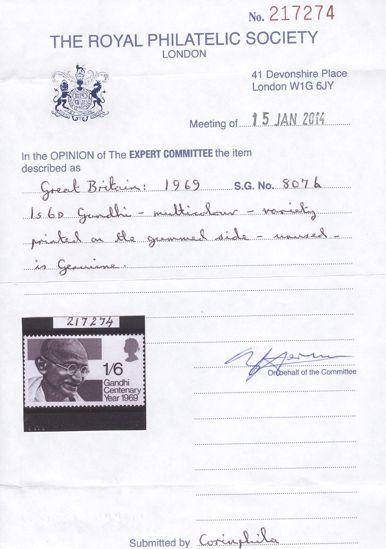 No. 217274
THE ROYAL PHILATELIC SOCIETY
LONDON
41 Devonshire Place
London W1G 6JY
Meeting of 15 JAN 2014
In the OPINION of The EXPERT COMMITTEE the item
described as
Great Britain: 1969 S.G. No. 807b
1s6D Gandhi - multicolour - variety
printed on the gummed side - unused -
is Genuine.
217274
1/6
Gandhi
Centenary
Year 1969
On behalf of the Committee
Submitted by Corinphila